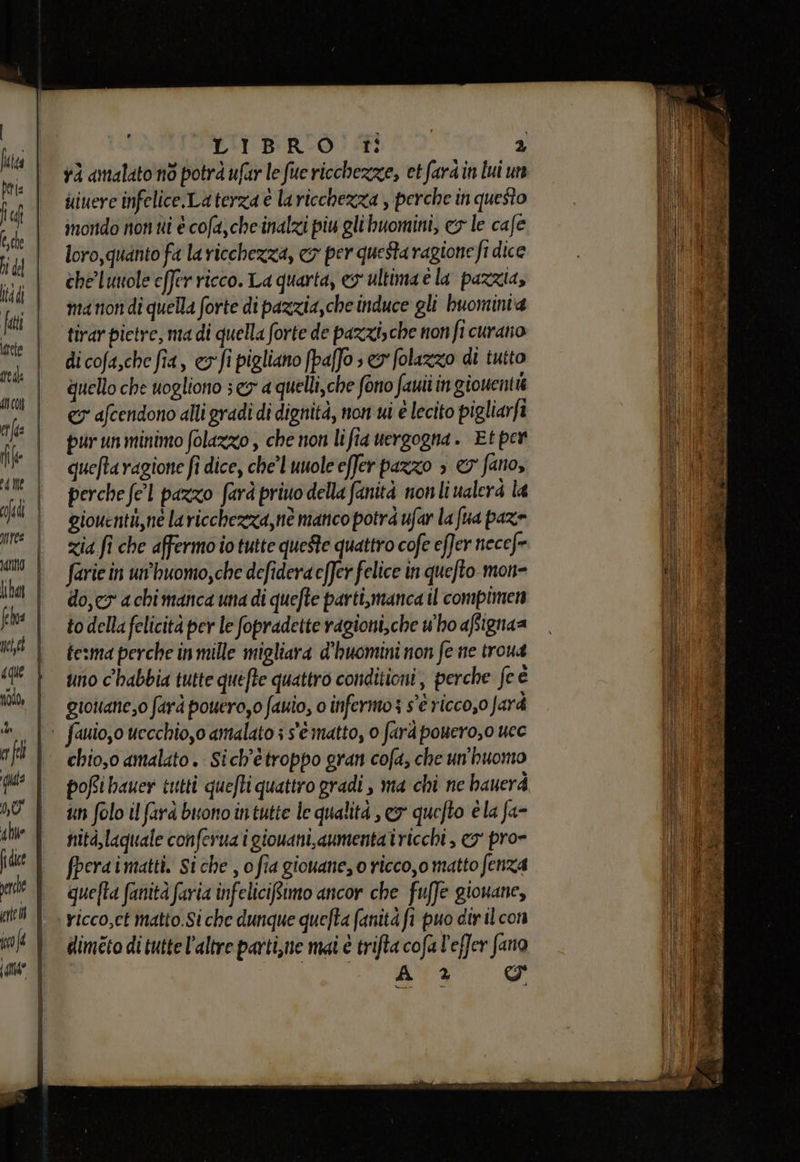 LIBRO I: 2
rà amalato nō potrà uſar le ſue ricchezze, et ſarà in lui un
uiuere infelice. La terza è la ricchezza, perche in queſto
mondo non ui è coſa, che inalzi piu gli huomini, & le caſe
loro, quanto fa la ricchezza, & per queſta ragione ſi dice
che'l uuole eſſer ricco. La quarta, & ultima è la pazzia,
ma non di quella ſorte di pazzia, che induce gli huomini à
tirar pietre, ma di quella ſorte de pazzi, che non ſi curano
di coſa, che ſia, & ſi pigliano ſpaſſo, & ſolazzo di tutto
quello che uogliono; & a quelli, che ſono ſauii in giouentù
& aſcendono alli gradi di dignità, non ui è lecito pigliarſi
pur un minimo ſolazzo, che non li ſia uergogna. Et per
queſta ragione ſi dice, che'l uuole eſſer pazzo, & ſano,
perche ſe'l pazzo ſarà priuo della ſanità non li ualerà la
giouentù, nè la ricchezza, nè manco potrà uſar la ſua paz=
zia ſi che affermo io tutte queſte quattro coſe eſſer neceſ=
ſarie in un'huomo, che deſidera eſſer felice in queſto mon=
do, & a chi manca una di queſte parti, manca il compimen
to della felicità per le ſopradette ragioni, che u'ho aſſigna=
te: ma perche in mille migliara d'huomini non ſe ne troua
uno c'habbia tutte queſte quattro conditioni, perche ſe è
giouane, o ſarà pouero, o ſauio, o infermo; s'è ricco, o ſarà
ſauio, o uecchio, o amalato; s'è matto, o ſarà pouero, o uec
chio, o amalato. Si ch'è troppo gran coſa, che un'huomo
poſſi hauer tutti queſti quattro gradi, ma chi ne hauerà
un ſolo il farà buono in tutte le qualità, & queſto è la ſa=
nità, laquale conſerua i giouani, aumenta i ricchi, & pro=
ſpera i matti. Si che, o ſia giouane, o ricco, o matto ſenza
queſta ſanità ſaria infeliciſſimo ancor che fuſſe giouane,
ricco, et matto. Si che dunque queſta ſanità ſi puo dir il con
dimēto di tutte l'altre parti, ne mai è triſta coſa l'eſſer ſano
A 2 &